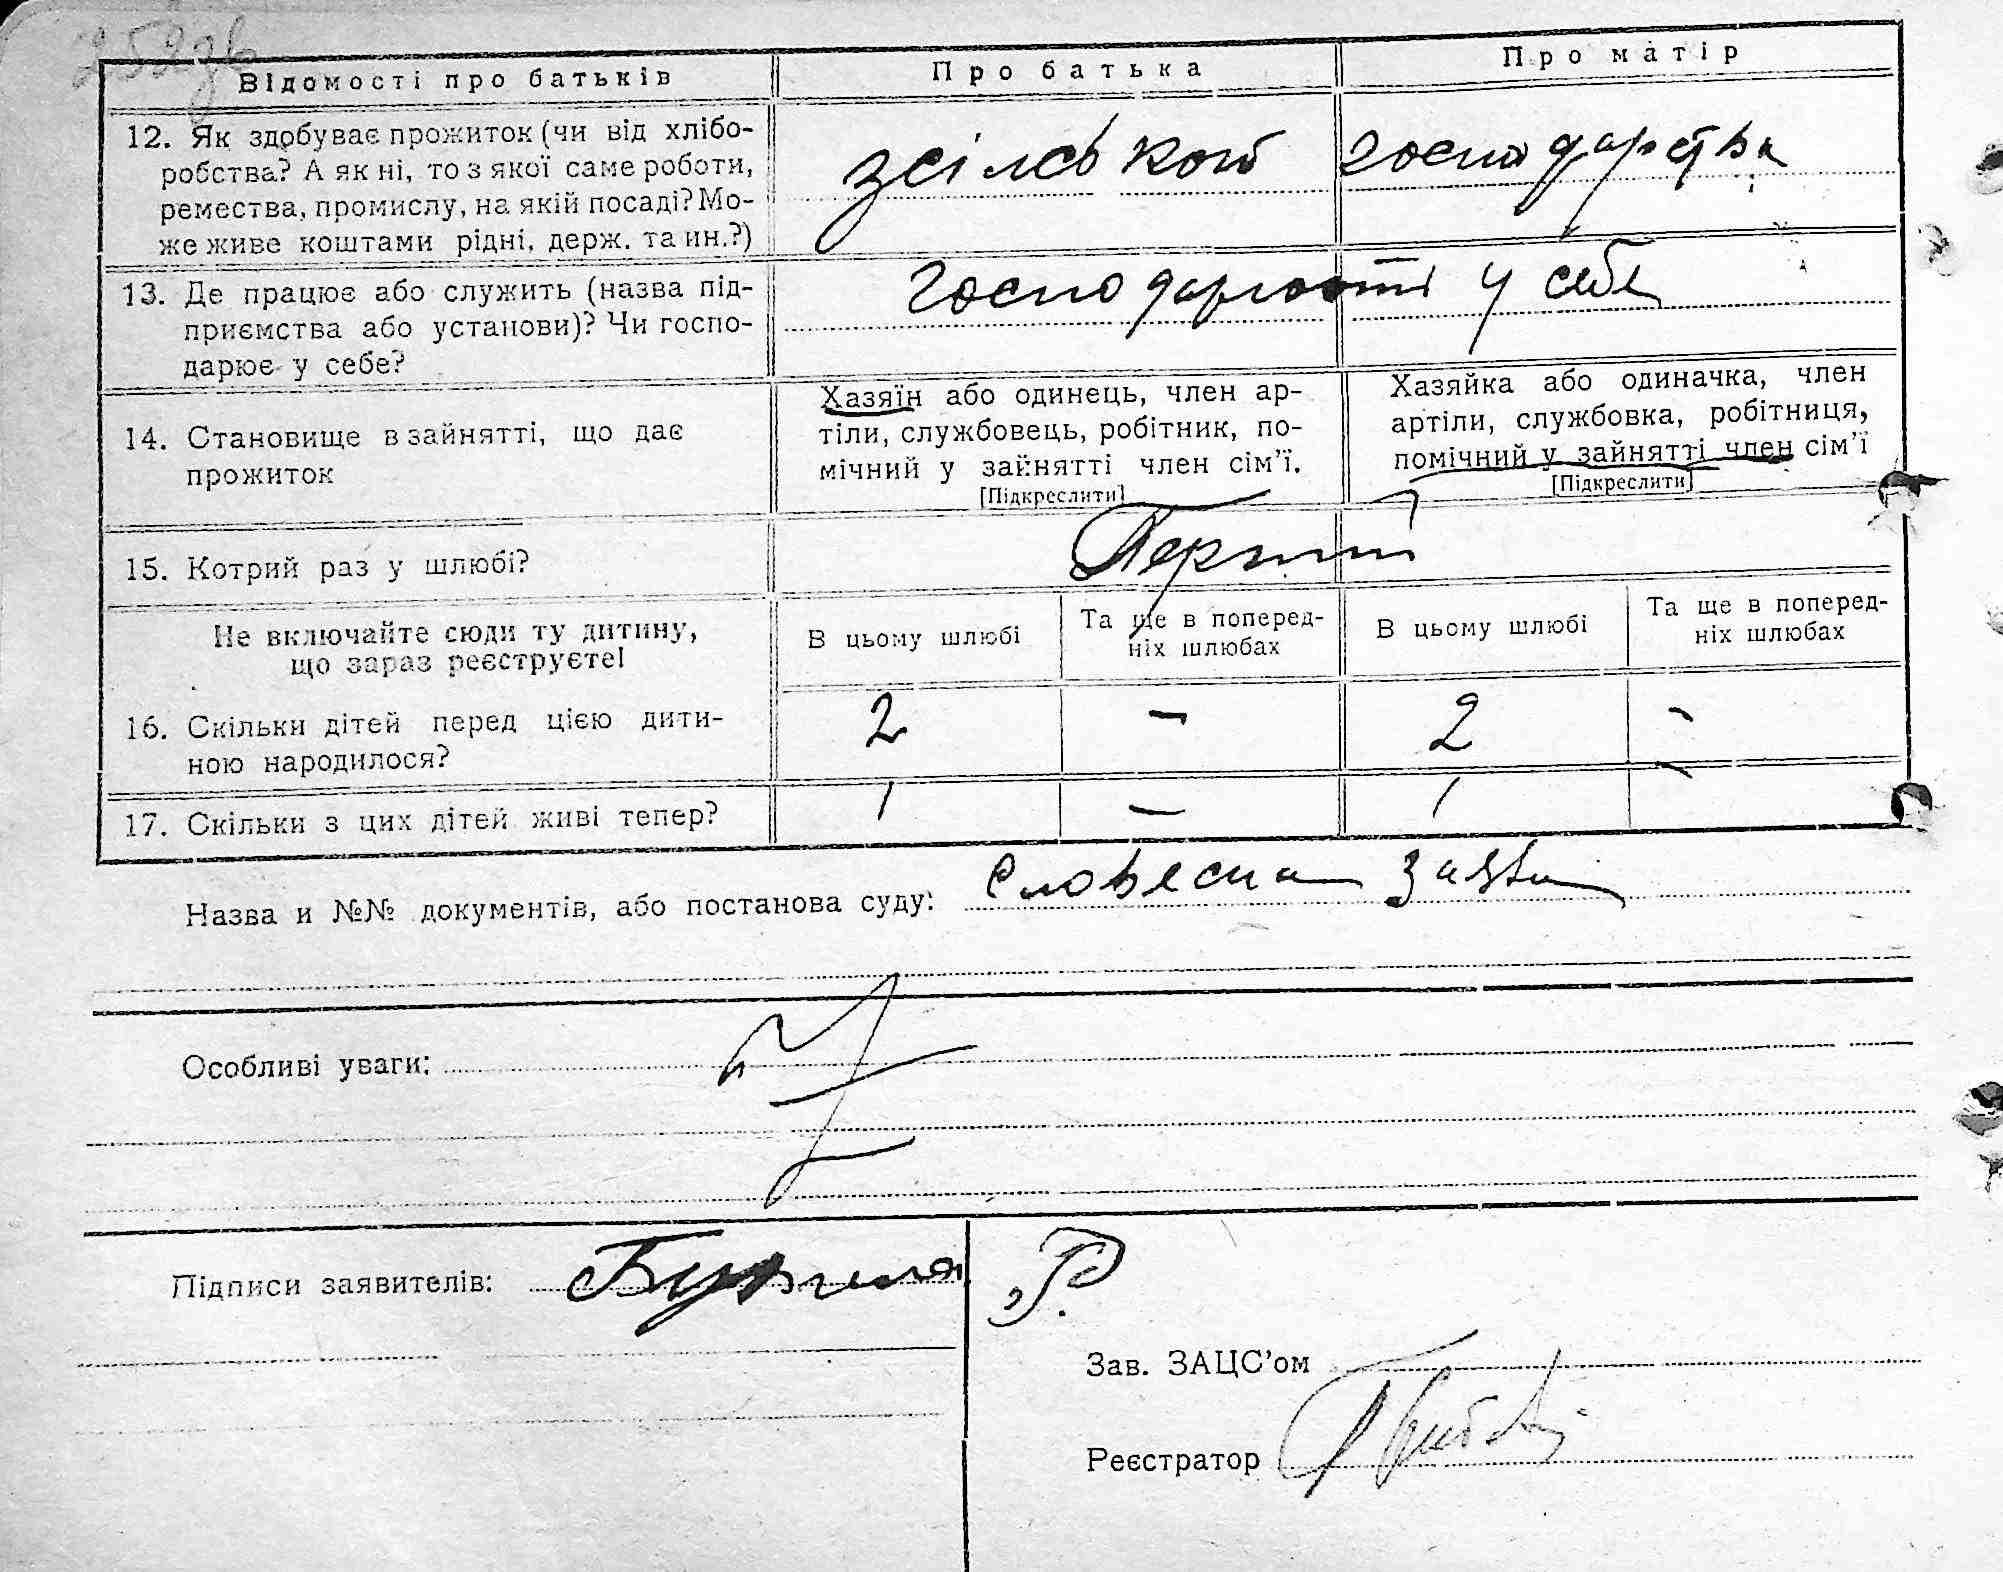 252 зв
Відомості про батьків
Про батька
Про матір
12. Як здобуває прожиток (чи від хлібо-
робства? А як ні, то з якої саме роботи,
ремества, промислу, на якій посаді? Мо-
же живе коштами рідні, держ. та ин.?)
зсілського господарства
13. Де працює або служить (назва під-
приємства або установи)? Чи госпо-
дарює у себе?
у себе
14. Становище в зайнятті, що дає
прожиток
Хазяїн або одинець, член ар-
тіли, службовець, робітник, по-
мічний у зайнятті член сім'ї.
[Підкреслити]
Хазяйка або одиначка, член
артіли, службовка, робітниця,
помічний у зайнятті член сім'ї
[Підкреслити]
15. Котрий раз у шлюбі?
Перший
Не включайте сюди ту дитину,
що зараз реєструєте!
В цьому шлюбі
Та ще в поперед-
ніх шлюбах
В цьому шлюбі
Та ще в поперед-
ніх шлюбах
16. Скільки дітей перед цією дити-
ною народилося?
2 - 2 -
17. Скільки з цих дітей живі тепер?
1 — 1 -
Назва и №№ документів, або постанова суду: Словесна заява
Особливі уваги:
Підписи заявителів:
Зав. ЗАЦС'ом
Реєстратор